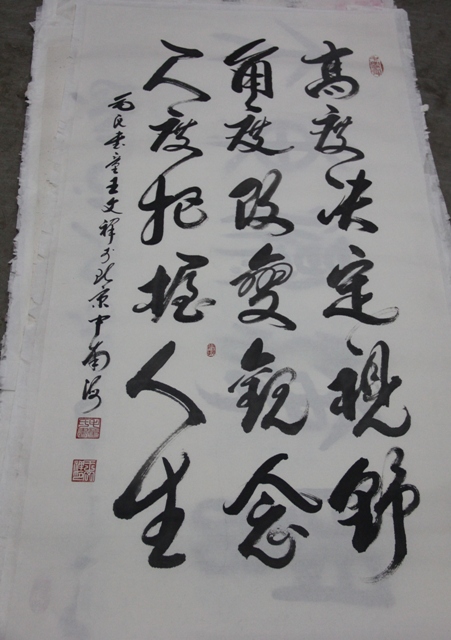 高度决定视野
角度改變觀念
尺度把握人生
为民书童王文祥于北京中南海